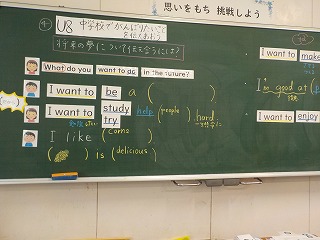 思いをもち 挑戦しよう
④ U8 中学校でがんばりたいことを伝えあおう
将来の夢について伝え合うには?
What do you want to do in the future?
I want to be a ( )
I want to study help (people) hard.
try
I like (corns
( ) is (delicious)
I want to make
I'm good at (
I want to enjoy